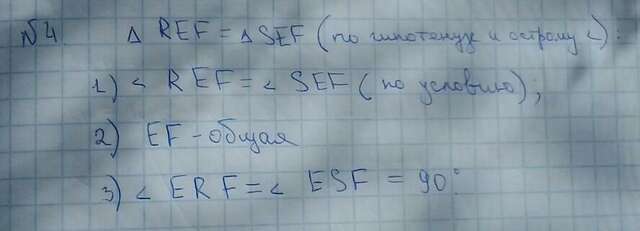 №4. Δ REF = Δ SEF (по гипотенузе и острому <):
1) < REF = < SEF (по условию);
2) EF - общая
3) < ERF = < ESF = 90°